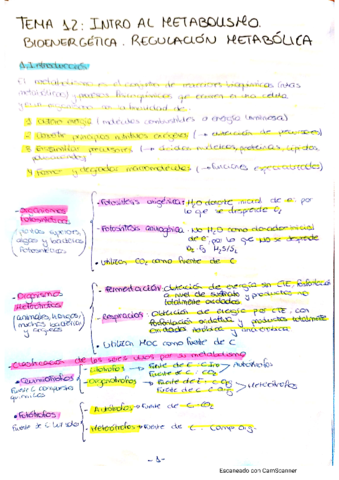 TEMA 12: INTRO AL METABOLISMO.
BIOENERGÉTICA. REGULACIÓN METABÓLICA
1. Introducción
El metabolismo es el conjunto de reacciones bioquímicas (rutas
metabólicas) y procesos fisicoquímicos que ocurren en una célula
y en un organismo con la finalidad de:
1. Obtener energía (moléculas combustibles o energía luminosa)
2. Convertir principios nutritivos exógenos (→ obtención de precursores)
3. Ensamblar precursores (→ ácidos nucleicos, proteínas, lípidos,
4. Formar y degradar biomoléculas (→ funciones especializadas)
- Organismos
fotosintéticos
(plantas superiores,
algas y bacterias
fotosintéticas)
• Fotosíntesis oxigénica: H2O donante inicial de e- por
lo que se desprende O2
• Fotosíntesis anoxigénica: No H2O como donador inicial
de e-, por lo que NO se desprende
O2. Ej: H2S/S
• Utilizan CO2 como fuente de C
- Organismos
heterótrofos
(animales, hongos,
muchas bacterias
• Fermentación: Obtención de energía sin CTE. Fosforilación
a nivel de sustrato y productos no
totalmente oxidados
• Respiración: Obtención de energía por CTE, con
fosforilación oxidativa y productos totalmente
oxidados
• Utilizan MOC como fuente de C
Clasificación de los seres vivos por su metabolismo
- Quimiótrofos
Fuente E compuestos
químicos
Fuente de C: CO2
- Fotótrofos
Fuente de E: luz solar
- Autótrofos → Fuente de C: CO2
- Heterótrofos → Fuente de C: Comp. Org.
- 1 -
Escaneado con CamScanner